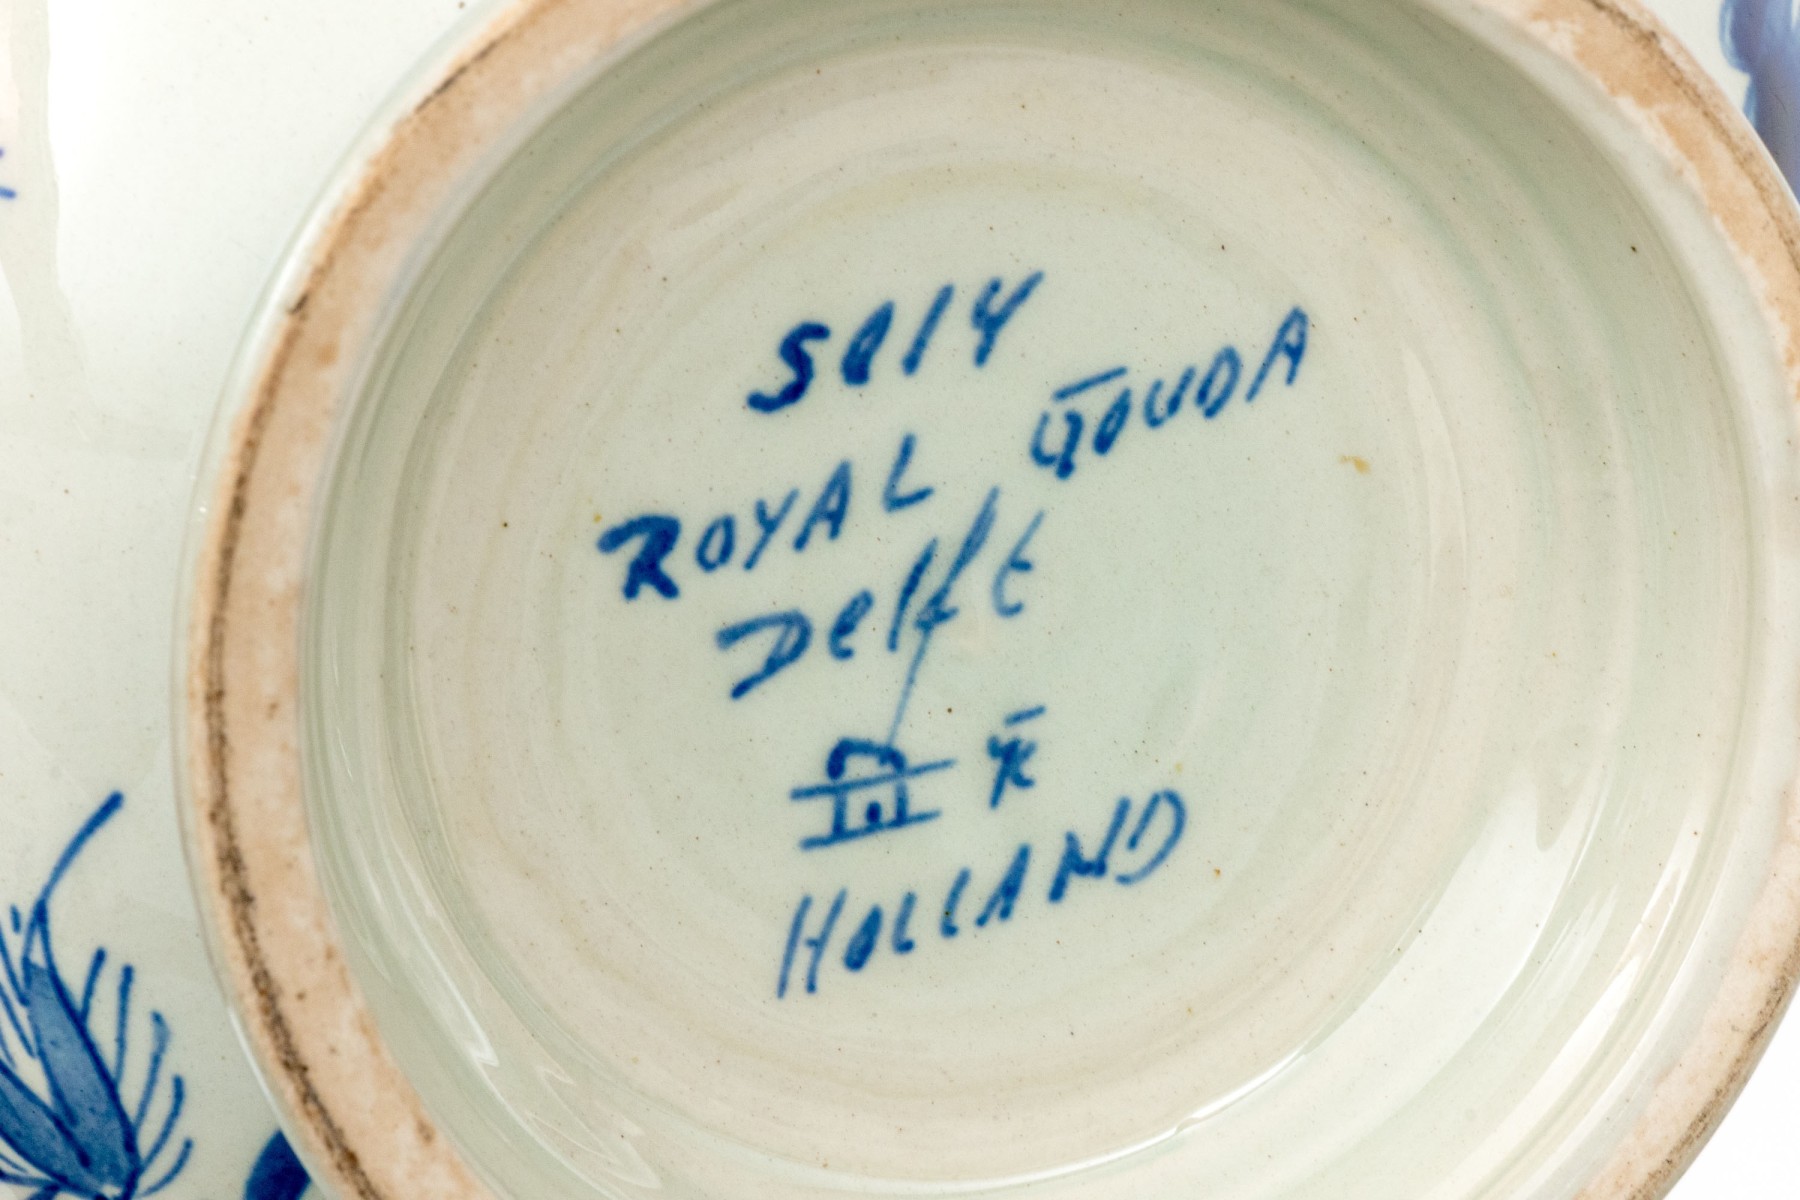 ROYAL GOUDA
Delft
HOLLAND